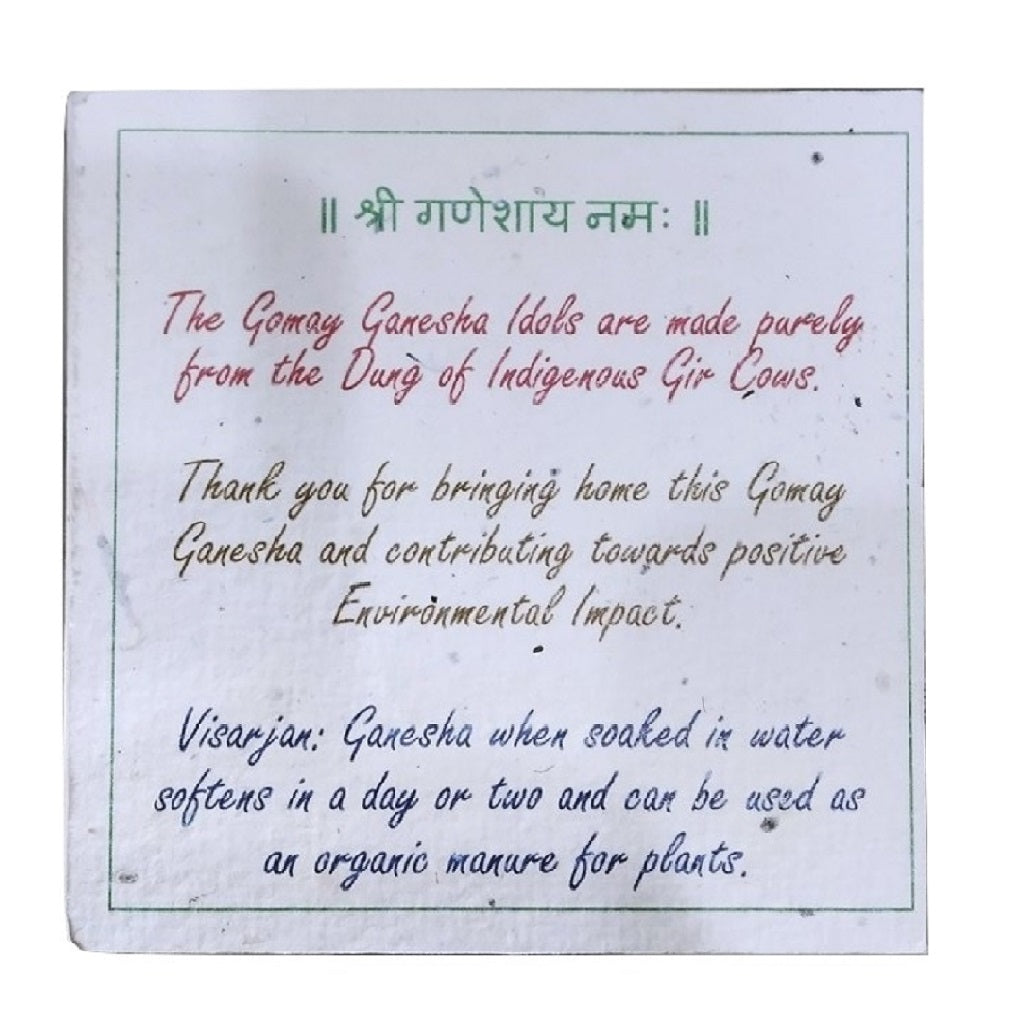 ॥ श्री गणेशाय नमः ॥
The Gomay Ganesha Idols are made purely
from the Dung of Indigenous Gir Cows.
Thank you for bringing home this Gomay
Ganesha and contributing towards positive
Environmental Impact.
Visarjan: Ganesha when soaked in water
softens in a day or two and can be used as
an organic manure for plants.